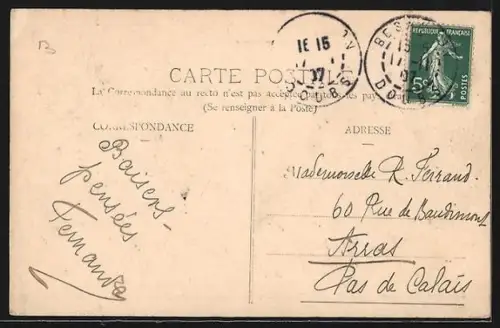 CARTE POSTALE
La Correspondance au recto n'est pas acceptée par tous les pays
(Se renseigner à la Poste)
CORRESPONDANCE
ADRESSE
Baisers-
pensées
Fernande
Mademoiselle R. Ferrand
60 Rue de Baudimont
Arras
Pas de Calais
RÉPUBLIQUE FRANÇAISE
5c
POSTES
1E 15
17
DOUBS
BES
DO